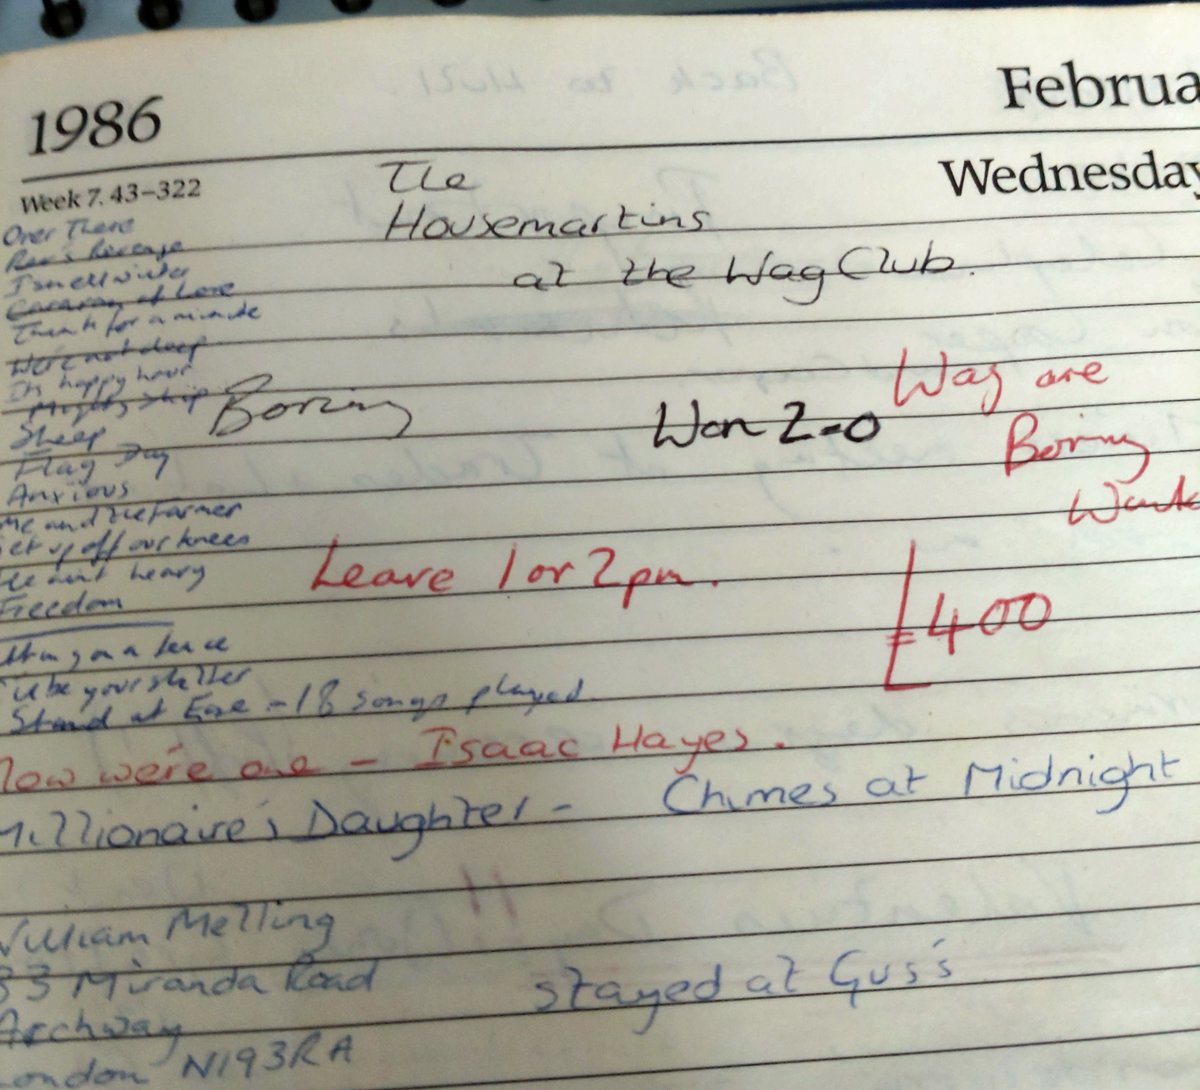 1986
Februa
Week 7. 43–322
Wednesday
The
Housemartins
at the Wag Club.
Over There
Rev's Revenge
I smell winter
Caravan of Love
Think for a minute
We're not deep
Its happy hour
Mighty Ship
Sheep
Flag Day
Anxious
me and the Farmer
et up off our knees
He aint heavy
Freedom
itting on a fence
'll be your shelter
Stand at Ease - 18 songs played
Boring
Won 2-0
Wag are
Boring
Wank
Leave 1 or 2pm.
£400
Now we're one - Isaac Hayes.
Millionaire's Daughter - Chimes at Midnight
William Melling
33 Miranda Road
Archway
London N193RA
stayed at Gus's
Back to Hull.